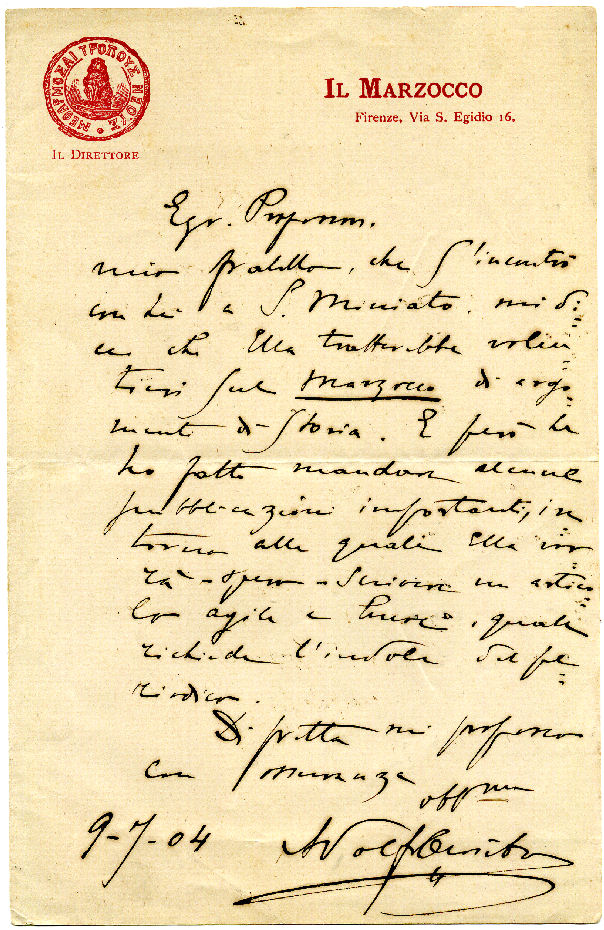 ΜΕΘΑΡΜΟΣΑΙ ΤΡΟΠΟΥΣ ΝΕΟΥΣ
IL DIRETTORE
IL MARZOCCO
Firenze, Via S. Egidio 16.
Egr. Professore,
mio fratello, che s'incontrò
con Lei a S. Miniato, mi di=
ce che Ella tratterebbe volen=
tieri sul Marzocco di argo=
menti di Storia. E però Le
ho fatto mandare alcune
pubblicazioni importanti, in=
torno alle quali Ella vor=
rà - spero - scrivere un artico=
lo agile e breve, quale
richiede l'indole del pe=
riodico.
Di fretta mi professo
con osservanza
obbmo
9-7-04 Adolfo Orvieto